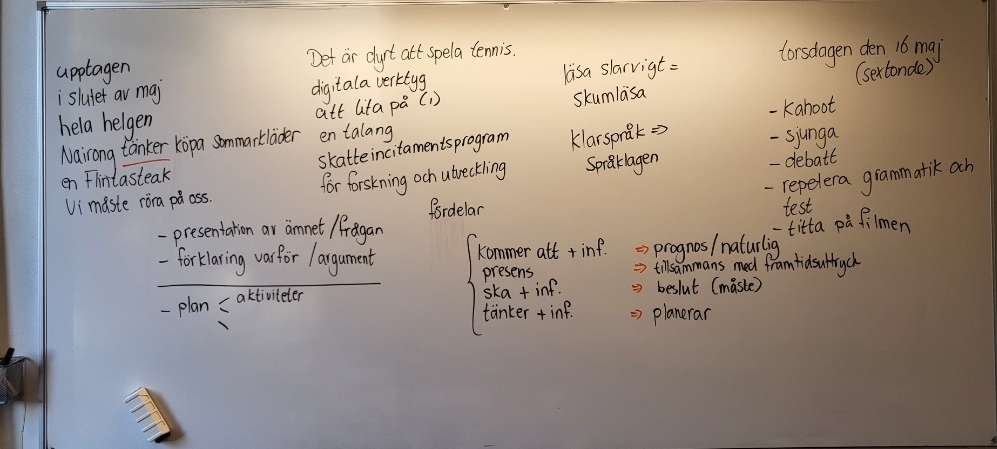 upptagen
i slutet av maj
hela helgen
Nairong tänker köpa sommarkläder
en Flintasteak
Vi måste röra på oss.
Det är dyrt att spela tennis.
digitala verktyg
att lita på (1)
en talang
skatteincitamentsprogram
för forskning och utveckling
fördelar
läsa slarvigt =
skumläsa
klarspråk ⇒
Språklagen
torsdagen den 16 maj
(sextonde)
- Kahoot
- sjunga
- debatt
- repetera grammatik och
test
- titta på filmen
- presentation av ämnet /frågan
- förklaring varför /argument
- plan < aktiviteter
kommer att + inf. ⇒ prognos/naturlig
presens ⇒ tillsammans med framtidsuttryck
ska + inf. ⇒ beslut (måste)
tänker + inf. ⇒ planerar